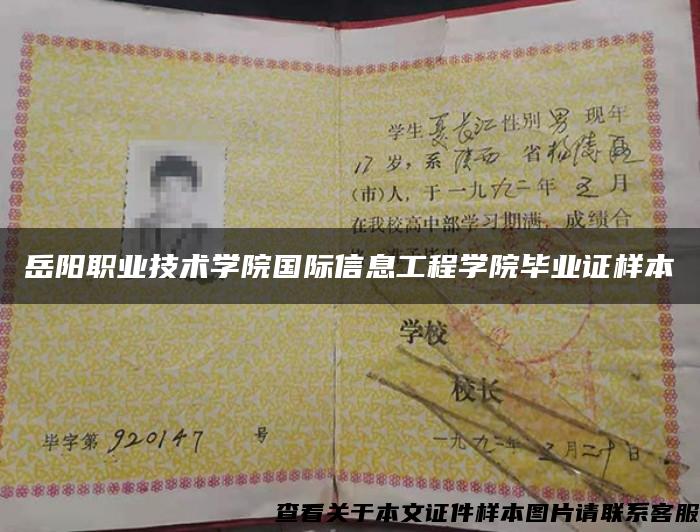 学生夏长江性别男 现年
17岁，系陕西 省杨陵区
(市)人，于一九九二年 五月
在我校高中部学习期满，成绩合
岳阳职业技术学院国际信息工程学院毕业证样本
学校
校长
毕字第 920147 号
一九九二年 五月二十日
查看关于本文证件样本图片请联系客服